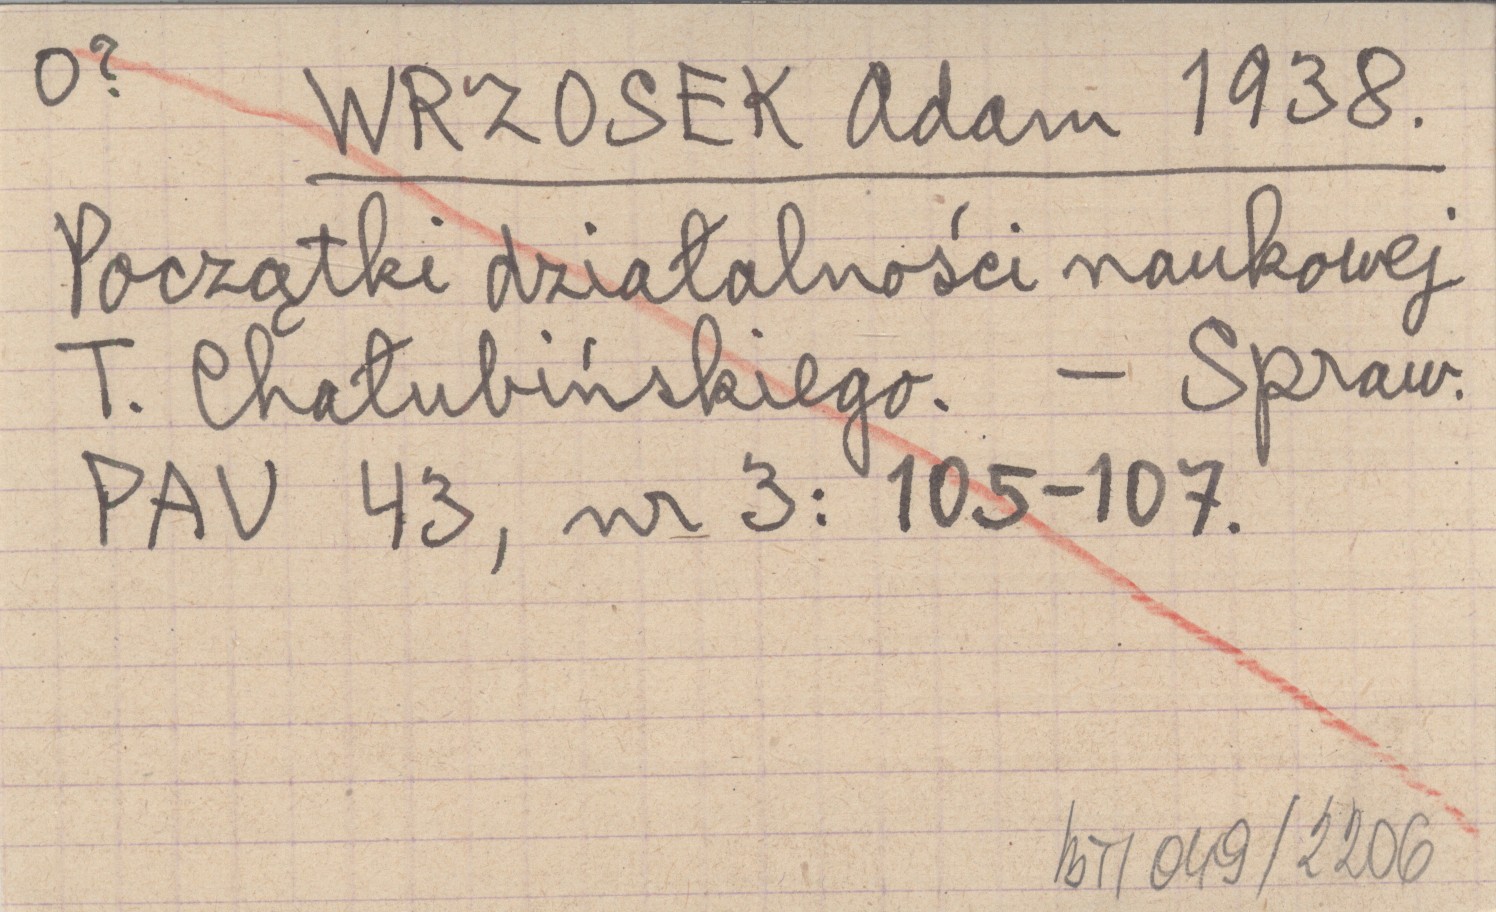 O? WRZOSEK Adam 1938.
Początki działalności naukowej
T. Chałubińskiego. – Spraw.
PAU 43, nr 3: 105-107.
049/2206